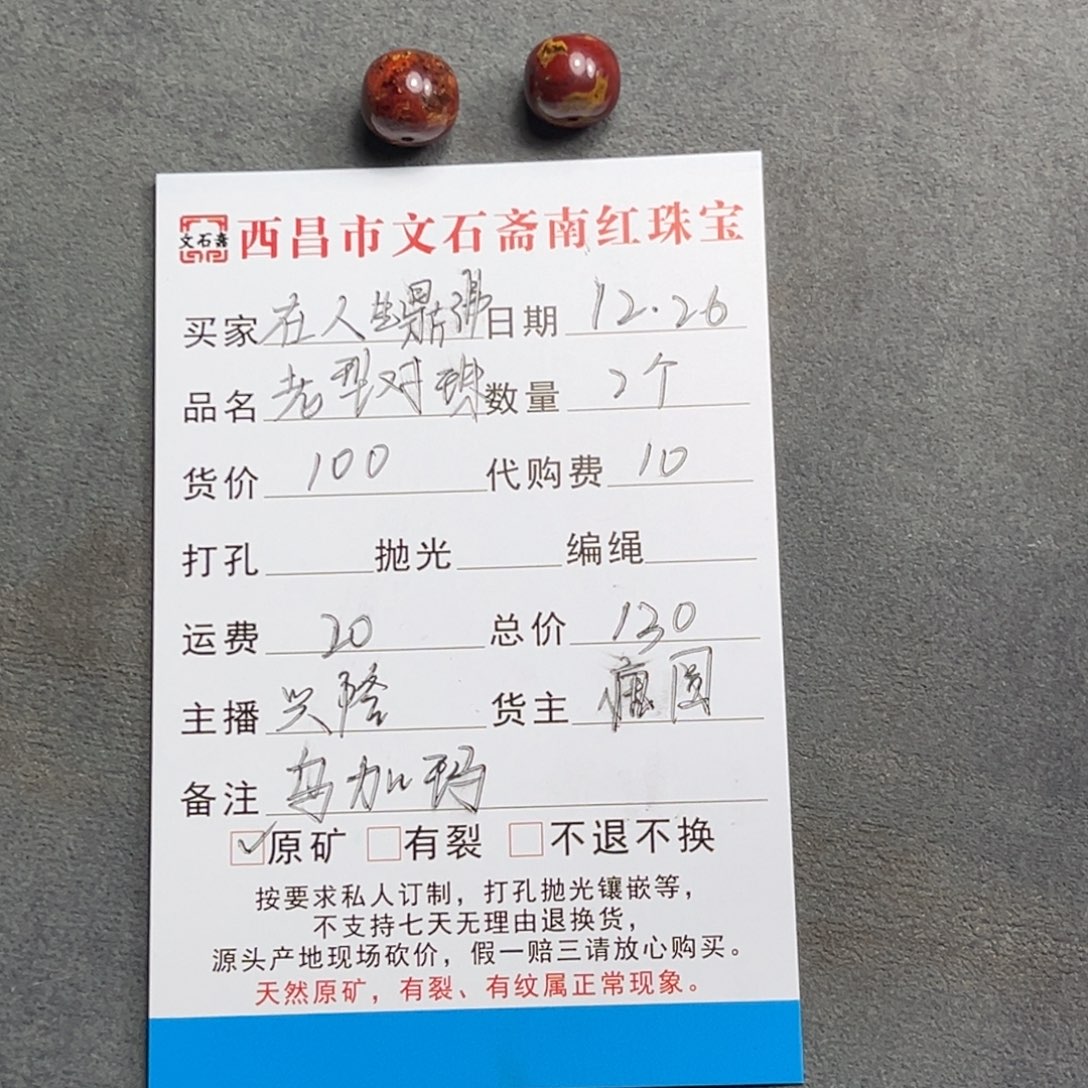 文石斋 西昌市文石斋南红珠宝
买家 在人生鼎沸 日期 12.26
品名 老型对珠 数量 2个
货价 100 代购费 10
打孔 抛光 编绳
运费 20 总价 130
主播 兴隆 货主 圆
备注 乌加玛
原矿 有裂 不退不换
按要求私人订制，打孔抛光镶嵌等，
不支持七天无理由退换货，
源头产地现场砍价，假一赔三请放心购买。
天然原矿，有裂、有纹属正常现象。